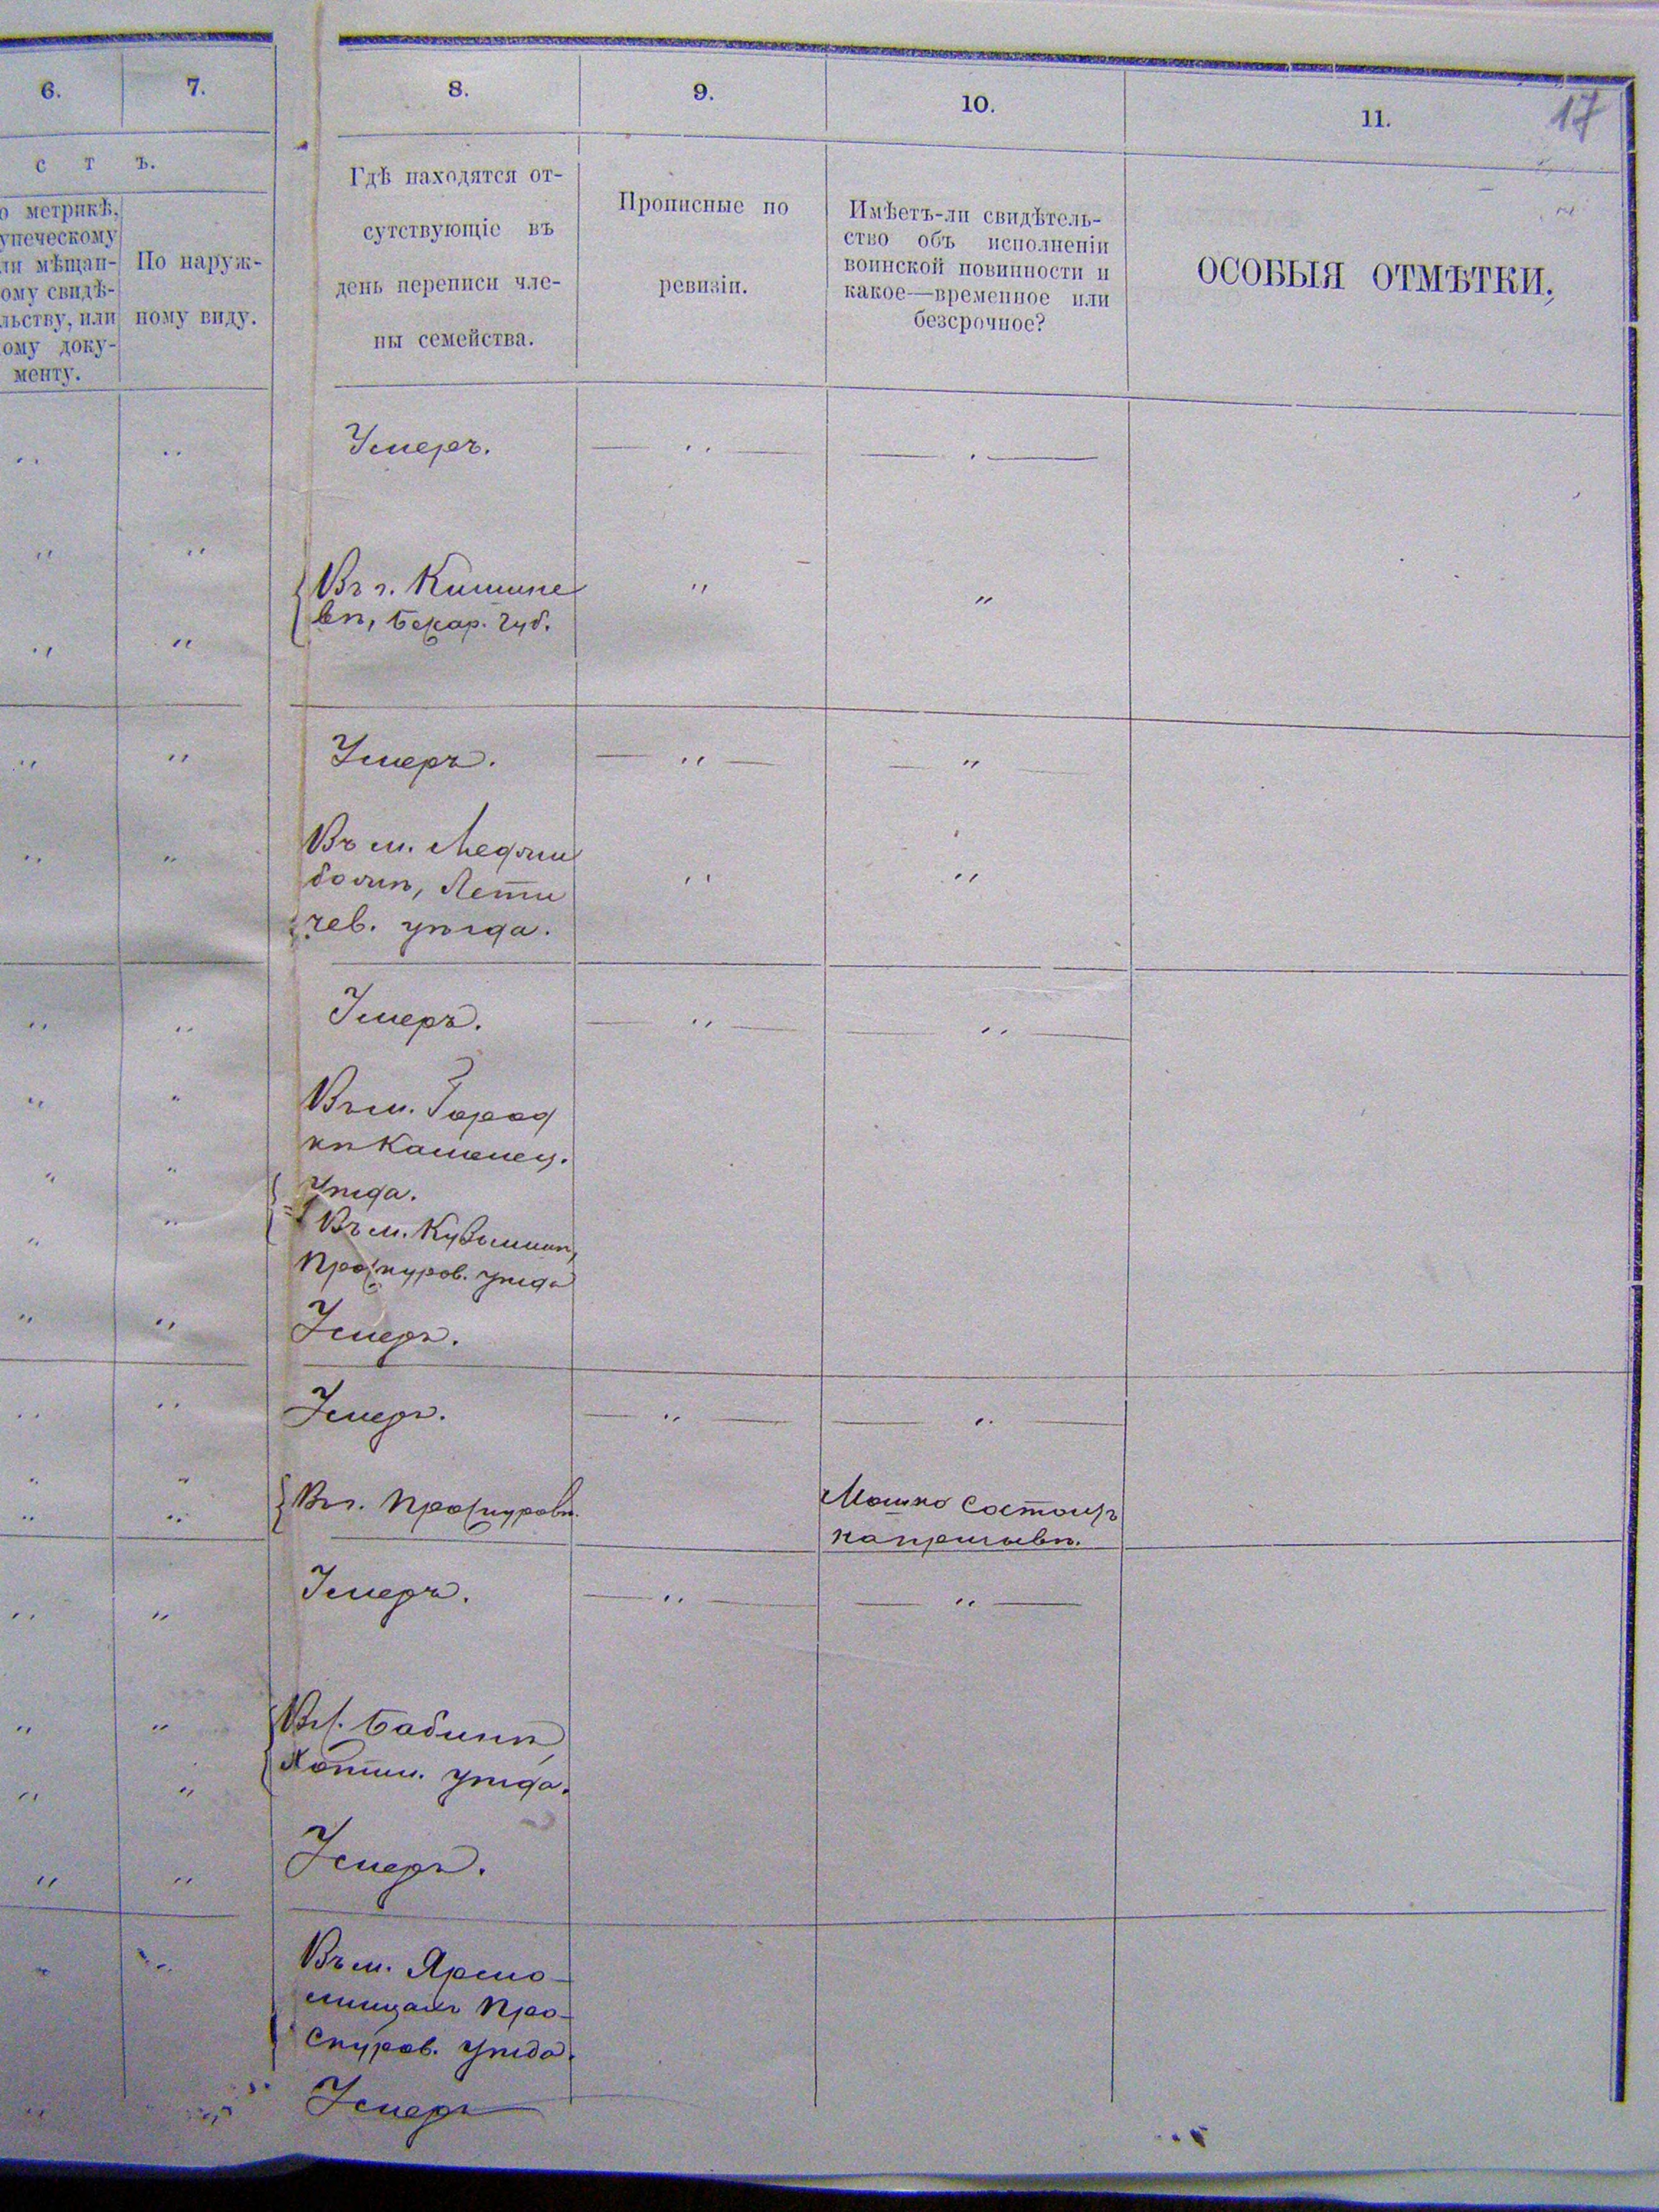 6.
7.
8.
9.
10.
11.
17
с т ъ.
о метрикѣ,
упеческому
ли мѣщан-
ому свидѣ-
льству, или
ому доку-
менту.
По наруж-
ному виду.
Гдѣ находятся от-
сутствующіе въ
день переписи чле-
ны семейства.
Прописные по
ревизіи.
Имѣетъ-ли свидѣтель-
ство объ исполненіи
воинской повинности и
какое—временное или
безсрочное?
ОСОБЫЯ ОТМѢТКИ.
Умеръ.
Въ г. Кишине
вѣ, Бесар. губ.
Умеръ.
Въ м. Меджи
божѣ, Лети
чев. уѣзда.
Умеръ.
Въ м. Город
кѣ Каменец.
Уѣзда.
Въ м.
Проскуров. уѣзда
Умеръ.
Умеръ.
Въ г. Проскуровѣ.
Мошко состоитъ
Умеръ.
Въ с. Бабинѣ,
Хотин. уѣзда.
Умеръ.
Въ м. Ярмо-
линцахъ Про-
скуров. уѣзда.
Умеръ